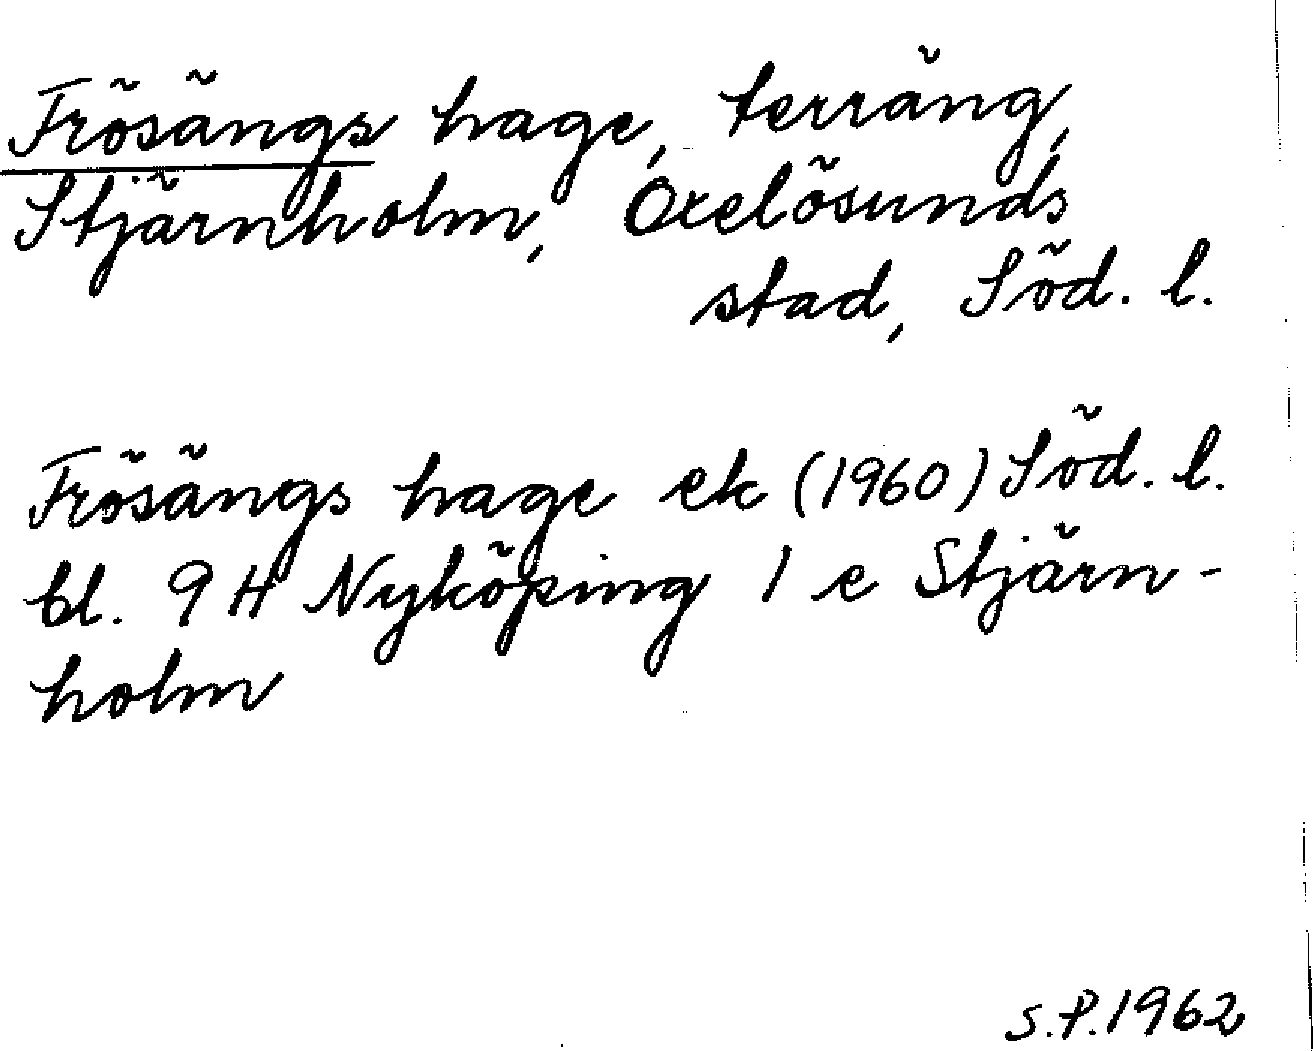 Frösängs hage, terräng,
Stjärnholm, Oxelösunds
stad, Söd. l.
Frösängs hage ek (1960) Söd. l.
bl. 9 H Nyköping 1 e Stjärn-
holm
S.P. 1962